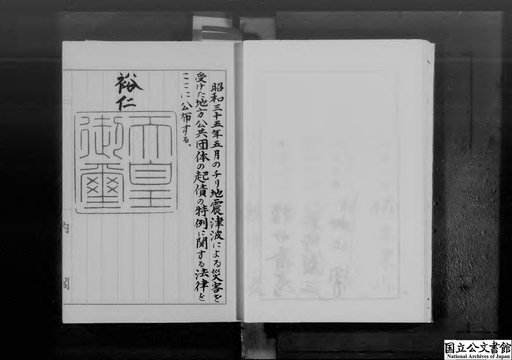 昭和三十五年五月のチリ地震津波による災害を
受けた地方公共団体の起債の特例に関する法律を
ここに公布する。
裕仁
天皇
御璽
内閣
国立公文書館
National Archives of Japan